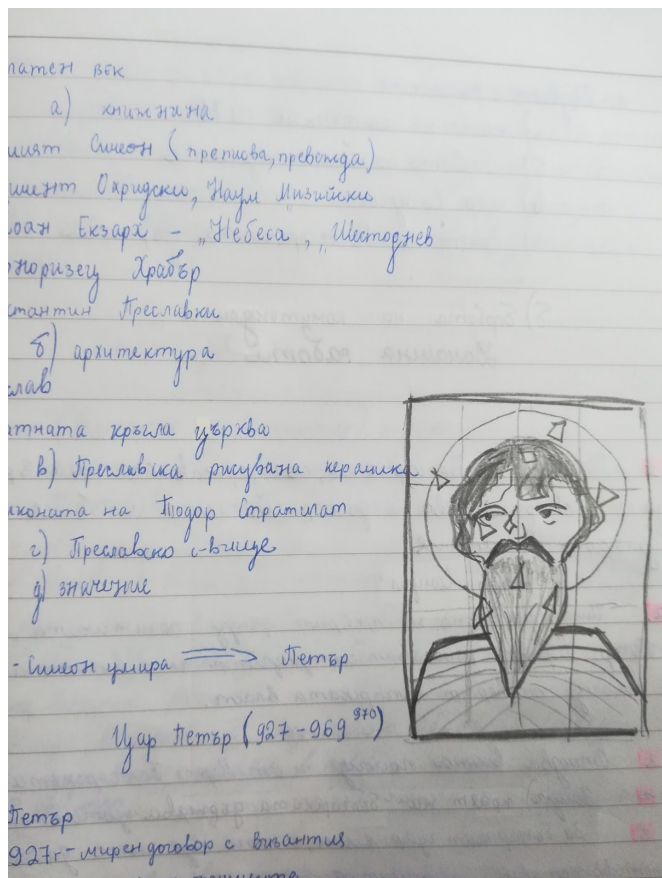 латен век
а) книжнина
мият Симеон (преписва, превожда)
имент Охридски, Наум Мизийски
оан Екзарх – „Небеса, „Шестоднев
норизец Храбър
стантин Преславки
б) архитектура
лав
атната кръгла църква
в) Преславска рисувана керамика
иконата на Тодор Стратилат
г) Преславско с-вище
д) значение
- Симеон умира ⟹ Петър
Цар Петър (927 – 969 970)
Петър
927г - мирен договор с Византия